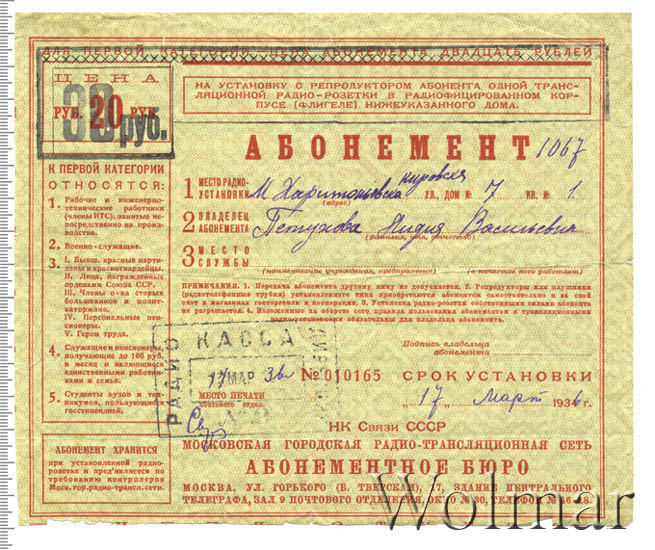 ДЛЯ ПЕРВОЙ КАТЕГОРИИ ЦЕНА АБОНЕМЕНТА ДВАДЦАТЬ РУБЛЕЙ
ЦЕНА
РУБ. 20 РУБ.
руб.
НА УСТАНОВКУ С РЕПРОДУКТОРОМ АБОНЕНТА ОДНОЙ ТРАНС-
ЛЯЦИОННОЙ РАДИО-РОЗЕТКИ В РАДИОФИЦИРОВАННОМ КОР-
ПУСЕ (ФЛИГЕЛЕ) НИЖЕУКАЗАННОГО ДОМА.
АБОНЕМЕНТ 1067
К ПЕРВОЙ КАТЕГОРИИ
ОТНОСЯТСЯ:
1. Рабочие и инженерно-
технические работники
(члены ИТС), занятые не-
посредственно на произ-
водстве.
2. Военно-служащие.
3. I. Бывш. красные партиз-
аны и красногвардейцы.
II. Лица, награжденные
орденами Союза ССР.
III. Члены о-ва старых
большевиков и полит-
каторжано.
IV. Персональные пен-
сионеры.
V. Герои труда.
4. Служащие и пенсионеры,
получающие до 100 руб.
в месяц и являющиеся
единственными работни-
ками в семье.
5. Студенты вузов и тех-
никумов, пользующиеся
госстипендией.
АБОНЕМЕНТ ХРАНИТСЯ
при установленной радио-
розетке и пред'является по
требованию контролеров
Моск. гор. радио-трансл. сети.
1 МЕСТО РАДИО-УСТАНОВКИ М Харитоньевска УЛ., ДОМ № 7 КВ. № 1
(адрес)
2 ВЛАДЕЛЕЦ АБОНЕМЕНТА Петухова Лидия Васильевн
(фамилия, имя, отчество)
3 МЕСТО СЛУЖБЫ
(наименование учреждения, предприятия) и в качестве кого работает)
ПРИМЕЧАНИЯ. 1. Передача абонемента другому лицу не допускается. 2. Репродукторы или наушники
(радиотелефонные трубки) установленного типа приобретаются абонентом самостоятельно и за свой
счет в магазинах госторговли и кооперации. 3. Установка радио-розетки собственными силами абонента
не разрешается. 4. Изложенные на обороте сего правила пользования абонементом и трансляционными
радио-установками обязательны для владельца абонемента.
Подпись владельца
абонемента
РАДИО КАССА
17 МАР 36
№ 010165
СРОК УСТАНОВКИ
МЕСТО ПЕЧАТИ
почтового отдел.
„17" Март 1936 г.
НК Связи СССР
МОСКОВСКАЯ ГОРОДСКАЯ РАДИО-ТРАНСЛЯЦИОННАЯ СЕТЬ
АБОНЕМЕНТНОЕ БЮРО
МОСКВА, УЛ. ГОРЬКОГО (Б. ТВЕРСКАЯ), 17, ЗДАНИЕ ЦЕНТРАЛЬНОГО
ТЕЛЕГРАФА, ЗАЛ 9 ПОЧТОВОГО ОТДЕЛЕНИЯ, ОКНО № 30, ТЕЛЕФОН №
Wolmar